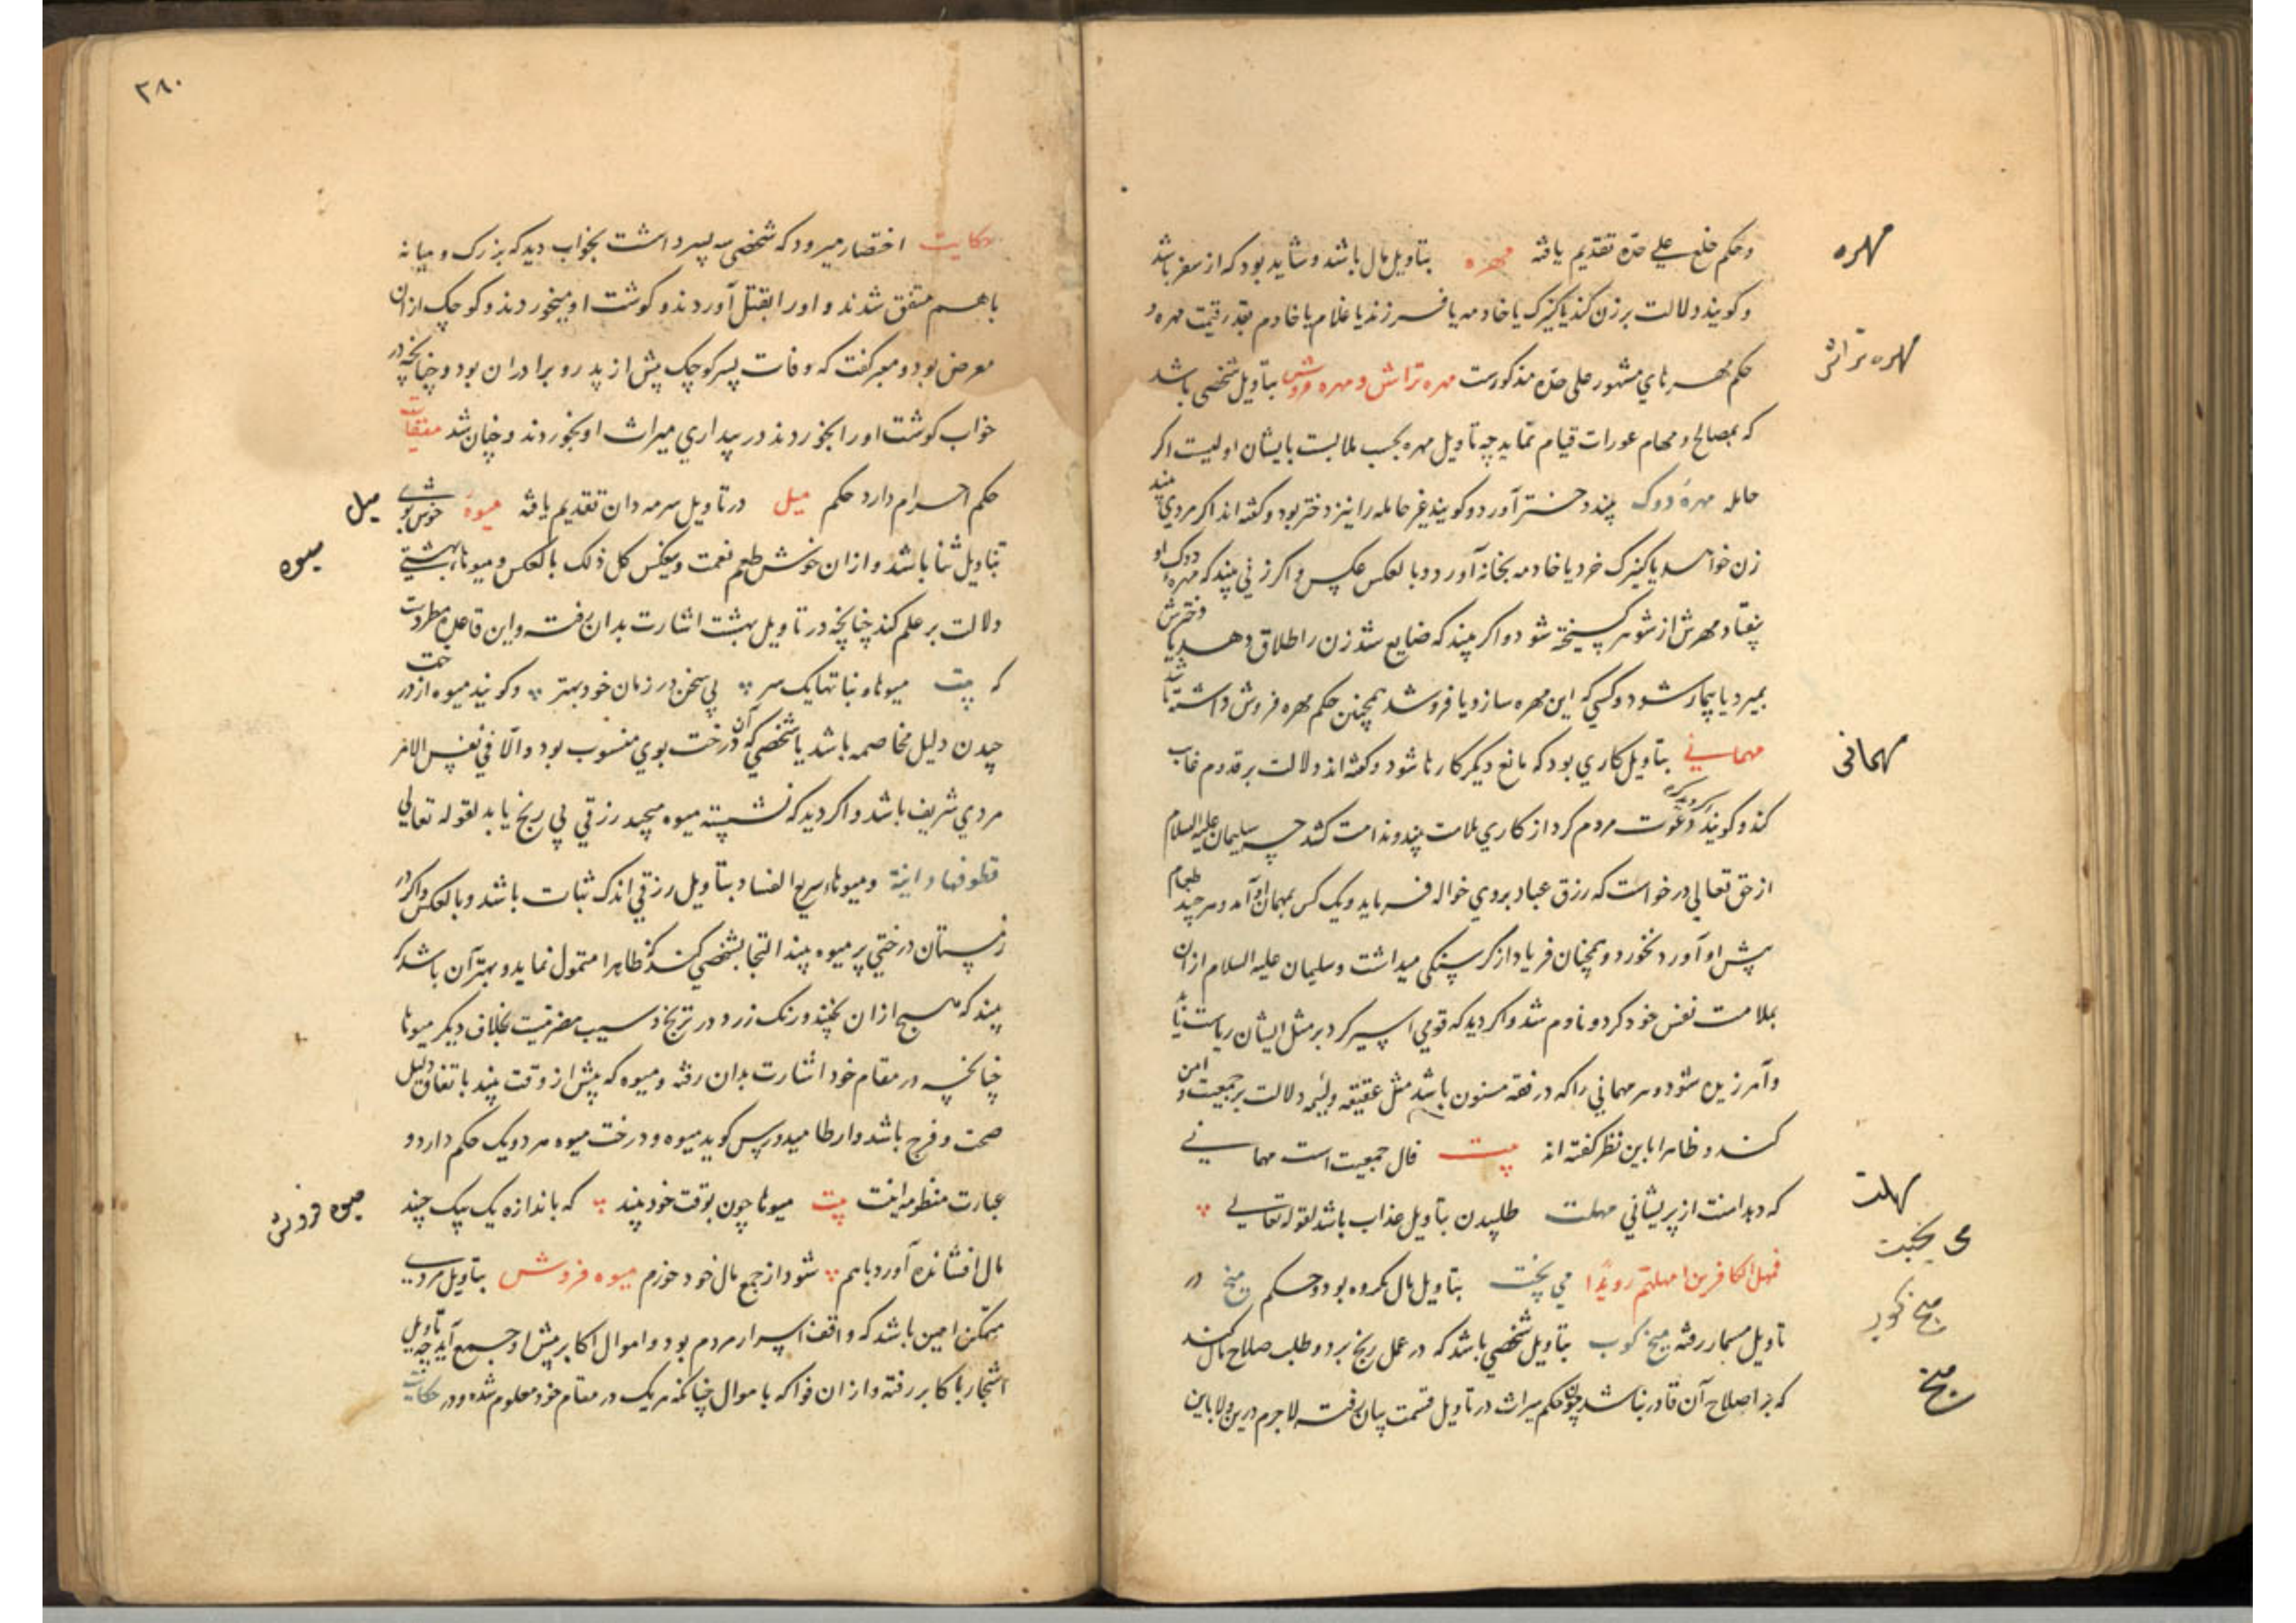 وحکم خلع علی حدّه تقدیم یافته مهره بتاویل مال باشد و شاید بود که از سفر باشد
و کویند دلالت بر زن کند یا کنیزک یا خادمه یا فرزند یا غلام یا خادم بقدر قیمت مهره و
حکم مهرهای مشهور علی حدّه مذکورست مهره تراش و مهره فروش بتاویل شخصی باشد
که بمصالح و مهام عورات قیام نماید چه تاویل مهره بحسب ملابست بایشان اولیست اکر
حامله مهرهٔ دوک بیند دختر آورد و کویند غیر حامله را نیز دختر بود و کفته اند اکر مردی بیند
زن خواهد یا کنیزک خرد یا خادمه بخانه آورد و بالعکس عکس و اکر زنی بیند که مهره دوک او
بیفتاد مهرش از شوهر کسیخته شود و اکر بیند که ضایع شد زن را طلاق دهد یا دخترش
بمیرد یا بیمار شود و کسی که این مهره سازد یا فروشد همچنین حکم مهره فروش داشته باشد
مهمانی بتاویل کاری بود که مانع دیکر کارها شود و کفته اند دلالت بر قدوم غایب
کند و کویند اکر دید که دعوت مردم کرد از کاری ملامت بیند و ندامت کشد چه سلیمان علیه السلام
از حق تعالی درخواست که رزق عباد بروی حواله فرماید و یک کس بمهمان او آمد و هر چند طعام
پیش او آورد بخورد و همچنان فریاد از کرسنکی میداشت و سلیمان علیه السلام از ان
بملامت نفس خود کرد و نادم شد و اکر دید که قومی اسیر کرد بر مثل ایشان ریاست یابد
و آمرزیده شود و هر مهمانی را که در فقه مسنون باشد مثل عقیقه و ولیمه دلالت بر جمعیت و امن
کند و ظاهرا باین نظر کفته اند بیت فال جمعیت است مهمانی
که دهد امنت از پریشانی مهلت طلبیدن بتاویل عذاب باشد لقوله تعالی
فمهل الکافرین امهلهم رویدًا می پخت بتاویل مال مکروه بود و حکم میخ در
تاویل مسمار رفته میخ کوب بتاویل شخصی باشد که در عمل رنج برد و طلب صلاح مال کند
که بر اصلاح آن قادر نباشد چون حکم میراث در تاویل قسمت بیان رفته لاجرم درین ولا باین
مهره
مهره تراش
مهمانی
مهلت
می پخت
میخ کوب
میخ
۲۸۰
حکایت اختصار میرود که شخصی سه پسر داشت بخواب دید که بزرک و میانه
باهم متفق شدند و او را بقتل آوردند و کوشت او میخوردند و کوچک از ان
معرض بود و معبر کفت که وفات پسر کوچک پیش از پدر و برادران بود و چنانچه در
خواب کوشت او را بخوردند در بیداری میراث او بخوردند و چنان شد میقات
حکم احرام دارد حکم میل در تاویل سرمه دان تقدیم یافته میوهٔ خوش بوی
بتاویل ثنا باشد و از ان خوش طعم نعمت و بعکس کل ذلک بالعکس و میوهاء بهشتی
دلالت بر علم کند چنانچه در تاویل بهشت اشارت بدان رفته و این قاعده مطردست
که بیت میوها و نباتها یک سر بی سخن در زمان خود بهتر و کویند میوه از درخت
چیدن دلیل مخاصمه باشد با شخصی که آن درخت بوی منسوب بود و الّا فی نفس الامر
مردی شریف باشد و اکر دید که نشسته میوه میچید رزقی بی رنج یابد لقوله تعالی
قطوفها دانیة و میوهاء سریع الفساد بتاویل رزقی اندک ثبات باشد و بالعکس و اکر در
زمستان درختی پر میوه بیند التجا بشخصی کند که ظاهرا متمول نماید و بهتر آن باشد که
بیند که هیچ از ان نچیند و رنک زرد در ترنج و سیب مضر نیست بخلاف دیکر میوها
چنانچه در مقام خود اشارت بدان رفته و میوه که پیش از وقت بیند باتفاق دلیل
صحت و فرج باشد و ارطامیدورس کوید میوه و درخت میوه هر دو یک حکم دارد و
عبارت منظومه اینست بیت میوها چون بوقت خود بیند که باندازه یک بیک چیند
مال افشانده آورد باهم شود از جمع مال خود خرم میوه فروش بتاویل مردی
متمکن امین باشد که واقف اسرار مردم بود و اموال اکابر پیش او جمع آید چه تاویل
اشجار باکابر رفته و از ان فواکه باموال چنانکه هر یک در مقام خود معلوم شده و در حکایت
میل
میوه
میوه فروش